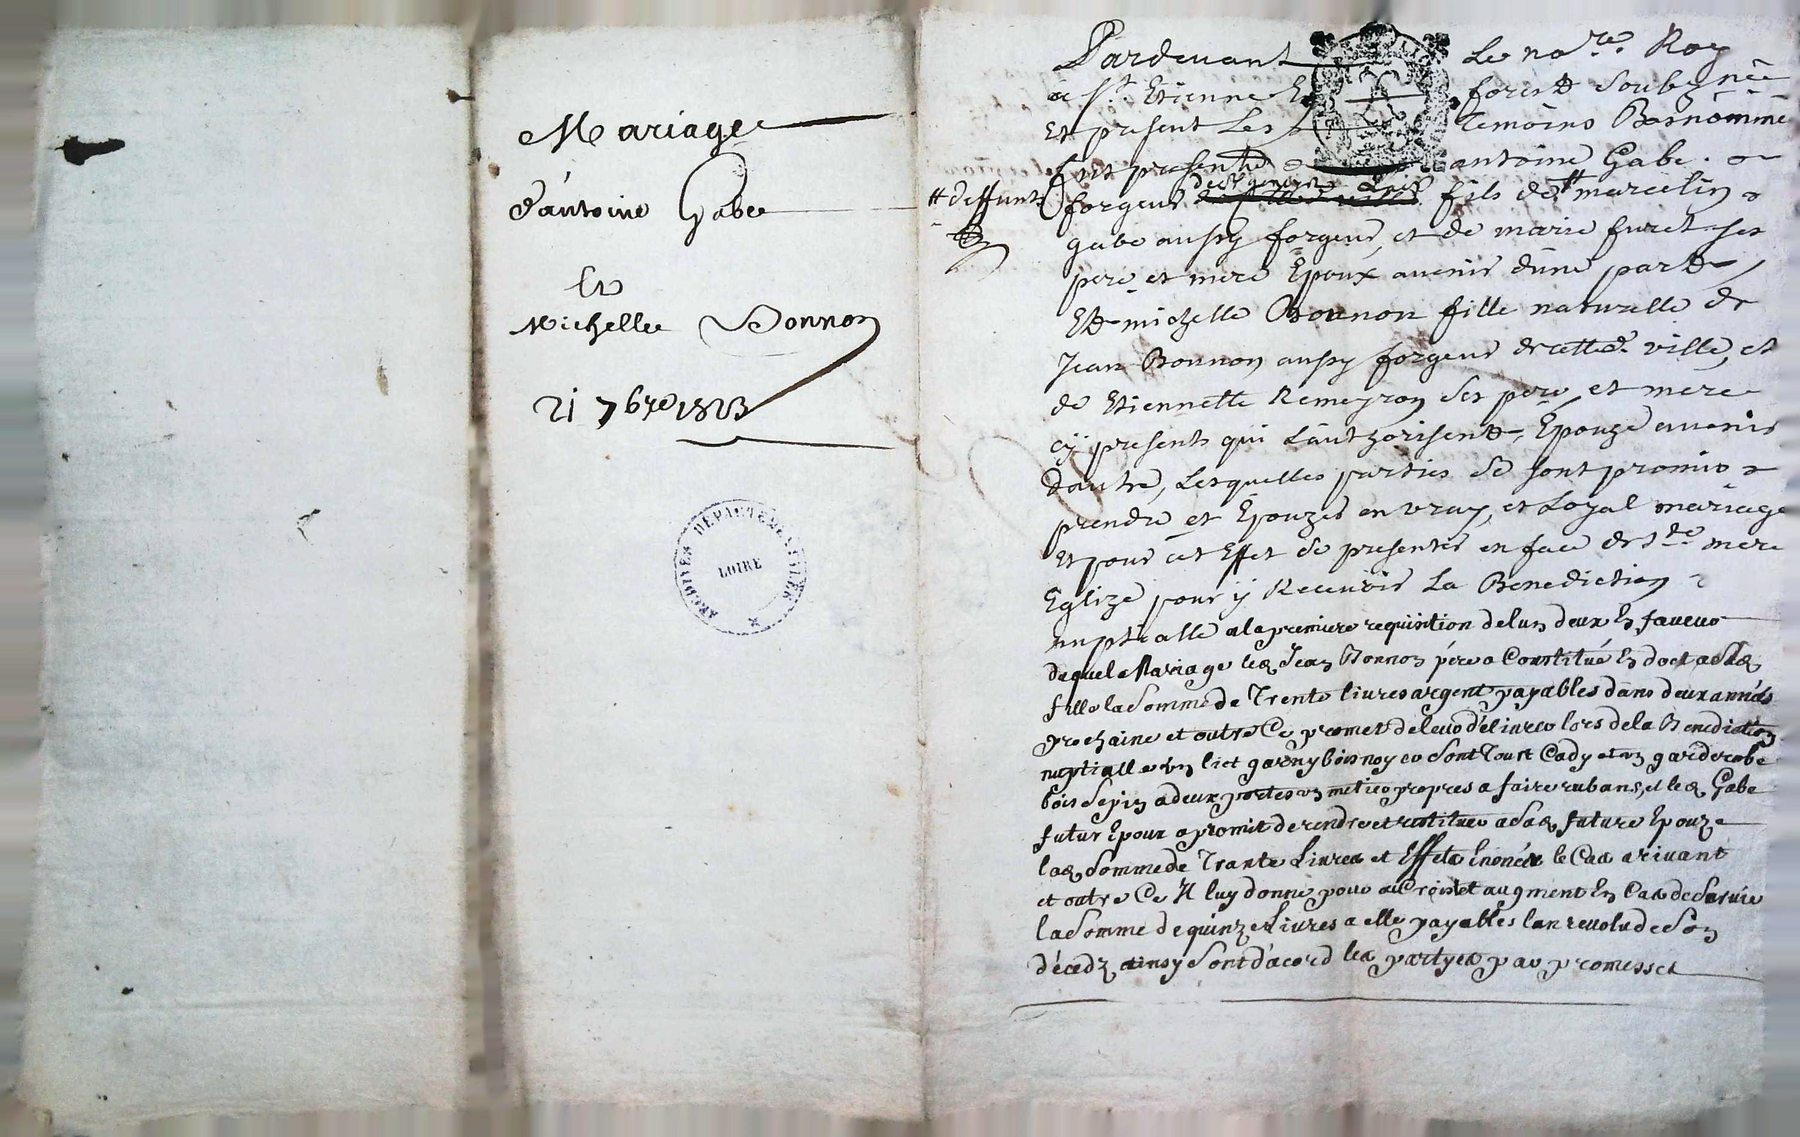 Mariage
d'antoine Gabe
Et
Michelle Bonnon
21 7bre
ARCHIVES DÉPARTEMENTALES
LOIRE
Pardevant Le nore Roy
a St Etienne En forest Soubzné
Et present Les temoins Basnommé
fut present antoine Gabe
# deffunt
forgeur fils de # marcelin
gabe aussy forgeur, et de marie furet ses
pere et mere Epoux avenir dune part
Et michelle Bonnon fille naturelle de
Jean Bonnon aussy forgeur de cette d. ville, et
de Etiennette Remeyron ses pere, et mere
cy presents qui L'authorisent, Epouze avenir
d'autre, Lesquelles parties se sont promis
prendre et Epouzer en vray, et Loyal mariage
Et pour cet Effet se presenter en face de ste mere
Eglize pour y Recevoir La Benediction
nuptialle a la premiere requisition de lun deux En faveur
duquel Mariage led. Jean Bonnon père a Constitué En doct a sad.
fille la Somme de Trente livres argent payables dans deux années
prochaine et outre Ce promet de leur délivrer lors de la Benediction
nuptialle un lict garny bois noyer Sont Tour Cady et un garderobe
bois Sepin a deux portes un metier propres a faire rubans, et led. Gabe
futur Epoux a promit de rendre et restituer a Sad. future Epouze
lad. Somme de Trante Livres et Effets Enoncés le Cas arivant
et outre Ce Il luy donne pour acCroist et augment En Cas de Survie
la Somme de quinze Livres a elle payables lan revolu de Son
décedz ainsy Sont d'acord les partyes par promesses